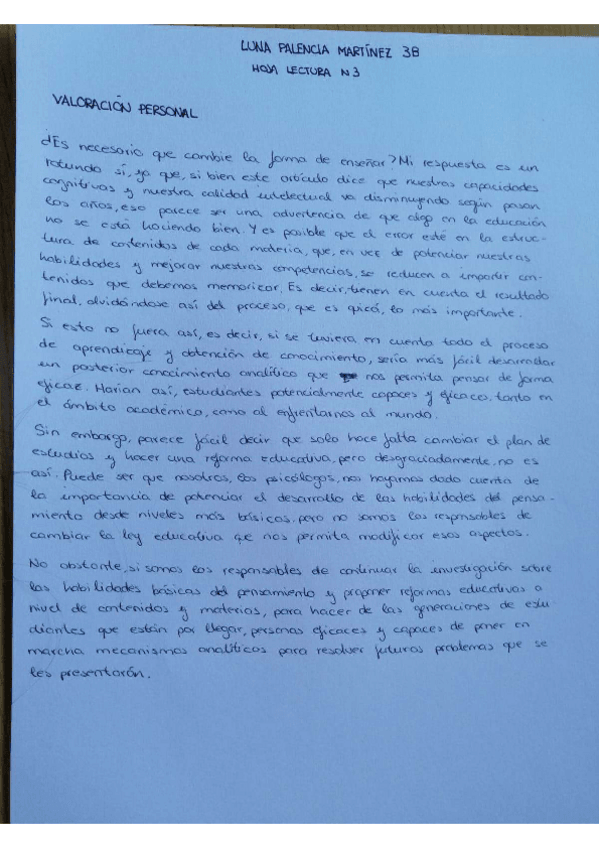 LUNA PALENCIA MARTÍNEZ 3B
HOJA LECTURA N3
VALORACIÓN PERSONAL
¿Es necesario que cambie la forma de enseñar? Mi respuesta es un
rotundo sí, ya que, si bien este artículo dice que nuestras capacidades
cognitivas y nuestra calidad intelectual va disminuyendo según pasan
los años, eso parece ser una advertencia de que algo en la educación
no se está haciendo bien. Y es posible que el error esté en la estruc-
tura de contenidos de cada materia, que, en vez de potenciar nuestras
habilidades y mejorar nuestras competencias, se reducen a impartir con-
tenidos que debemos memorizar. Es decir, tienen en cuenta el resultado
final, olvidándose así del proceso, que es quizá, lo más importante.
Si esto no fuera así, es decir, si se tuviera en cuenta todo el proceso
de aprendizaje y obtención de conocimiento, sería más fácil desarrollar
un posterior conocimiento analítico que nos permita pensar de forma
eficaz. Harían así, estudiantes potencialmente capaces y eficaces, tanto en
el ámbito académico, como al enfrentarnos al mundo.
Sin embargo, parece fácil decir que solo hace falta cambiar el plan de
estudios y hacer una reforma educativa, pero desgraciadamente, no es
así. Puede ser que nosotros, los psicólogos, nos hayamos dado cuenta de
la importancia de potenciar el desarrollo de las habilidades del pensa-
miento desde niveles más básicos, pero no somos los responsables de
cambiar la ley educativa que nos permita modificar esos aspectos.
No obstante, si somos los responsables de continuar la investigación sobre
las habilidades básicas del pensamiento y proponer reformas educativas a
nivel de contenidos y materias, para hacer de las generaciones de estu
diantes que están por llegar, personas eficaces y capaces de poner en
marcha mecanismos analíticos para resolver futuros problemas que se
les presentarán.